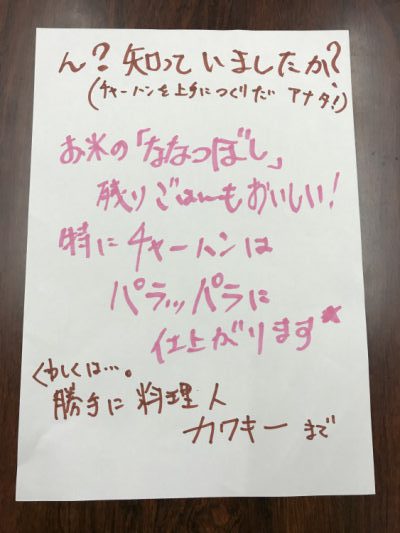 ん？知っていましたか？
(チャーハンを上手につくりだ アナタ！)
お米の「ななつぼし」
残りごはんもおいしい！
特にチャーハンは
パラッパラに
仕上がります★
くわしくは…。
勝手に料理人
カワキーまで